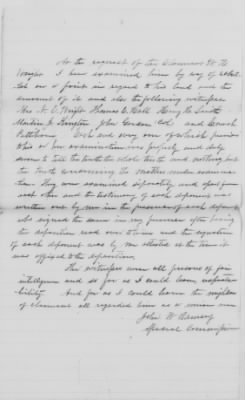 At the request of the Claimant W. H.
Wright I have examined him by way of
on a point in regard to his land and the
amount of it and also the following witnesses
Mrs. A. C. Wright Thomas C. Hall Henry H. Smith
Martin J. Kington John Gordon (Col) and Enoch
Pettiford. Each and every one of which previous
this or her examination was properly and duly
sworn to tell the truth the whole truth and nothing but
the truth concerning the matters under examina-
tion. They were examined separately and apart from
each other and the testimony of each deponent was
written out by me in the presence of each deponent
who signed the same in my presence after having
the deposition read over to him and the signature
of each deponent was by me attested at the time it
was affixed to the deposition.
The witnesses were all persons of fair
intelligence and so far as I could learn
bility. And far as I could learn the neighbors
of claimant all regarded him as a union man
John W. Ramsey
Special Commissioner